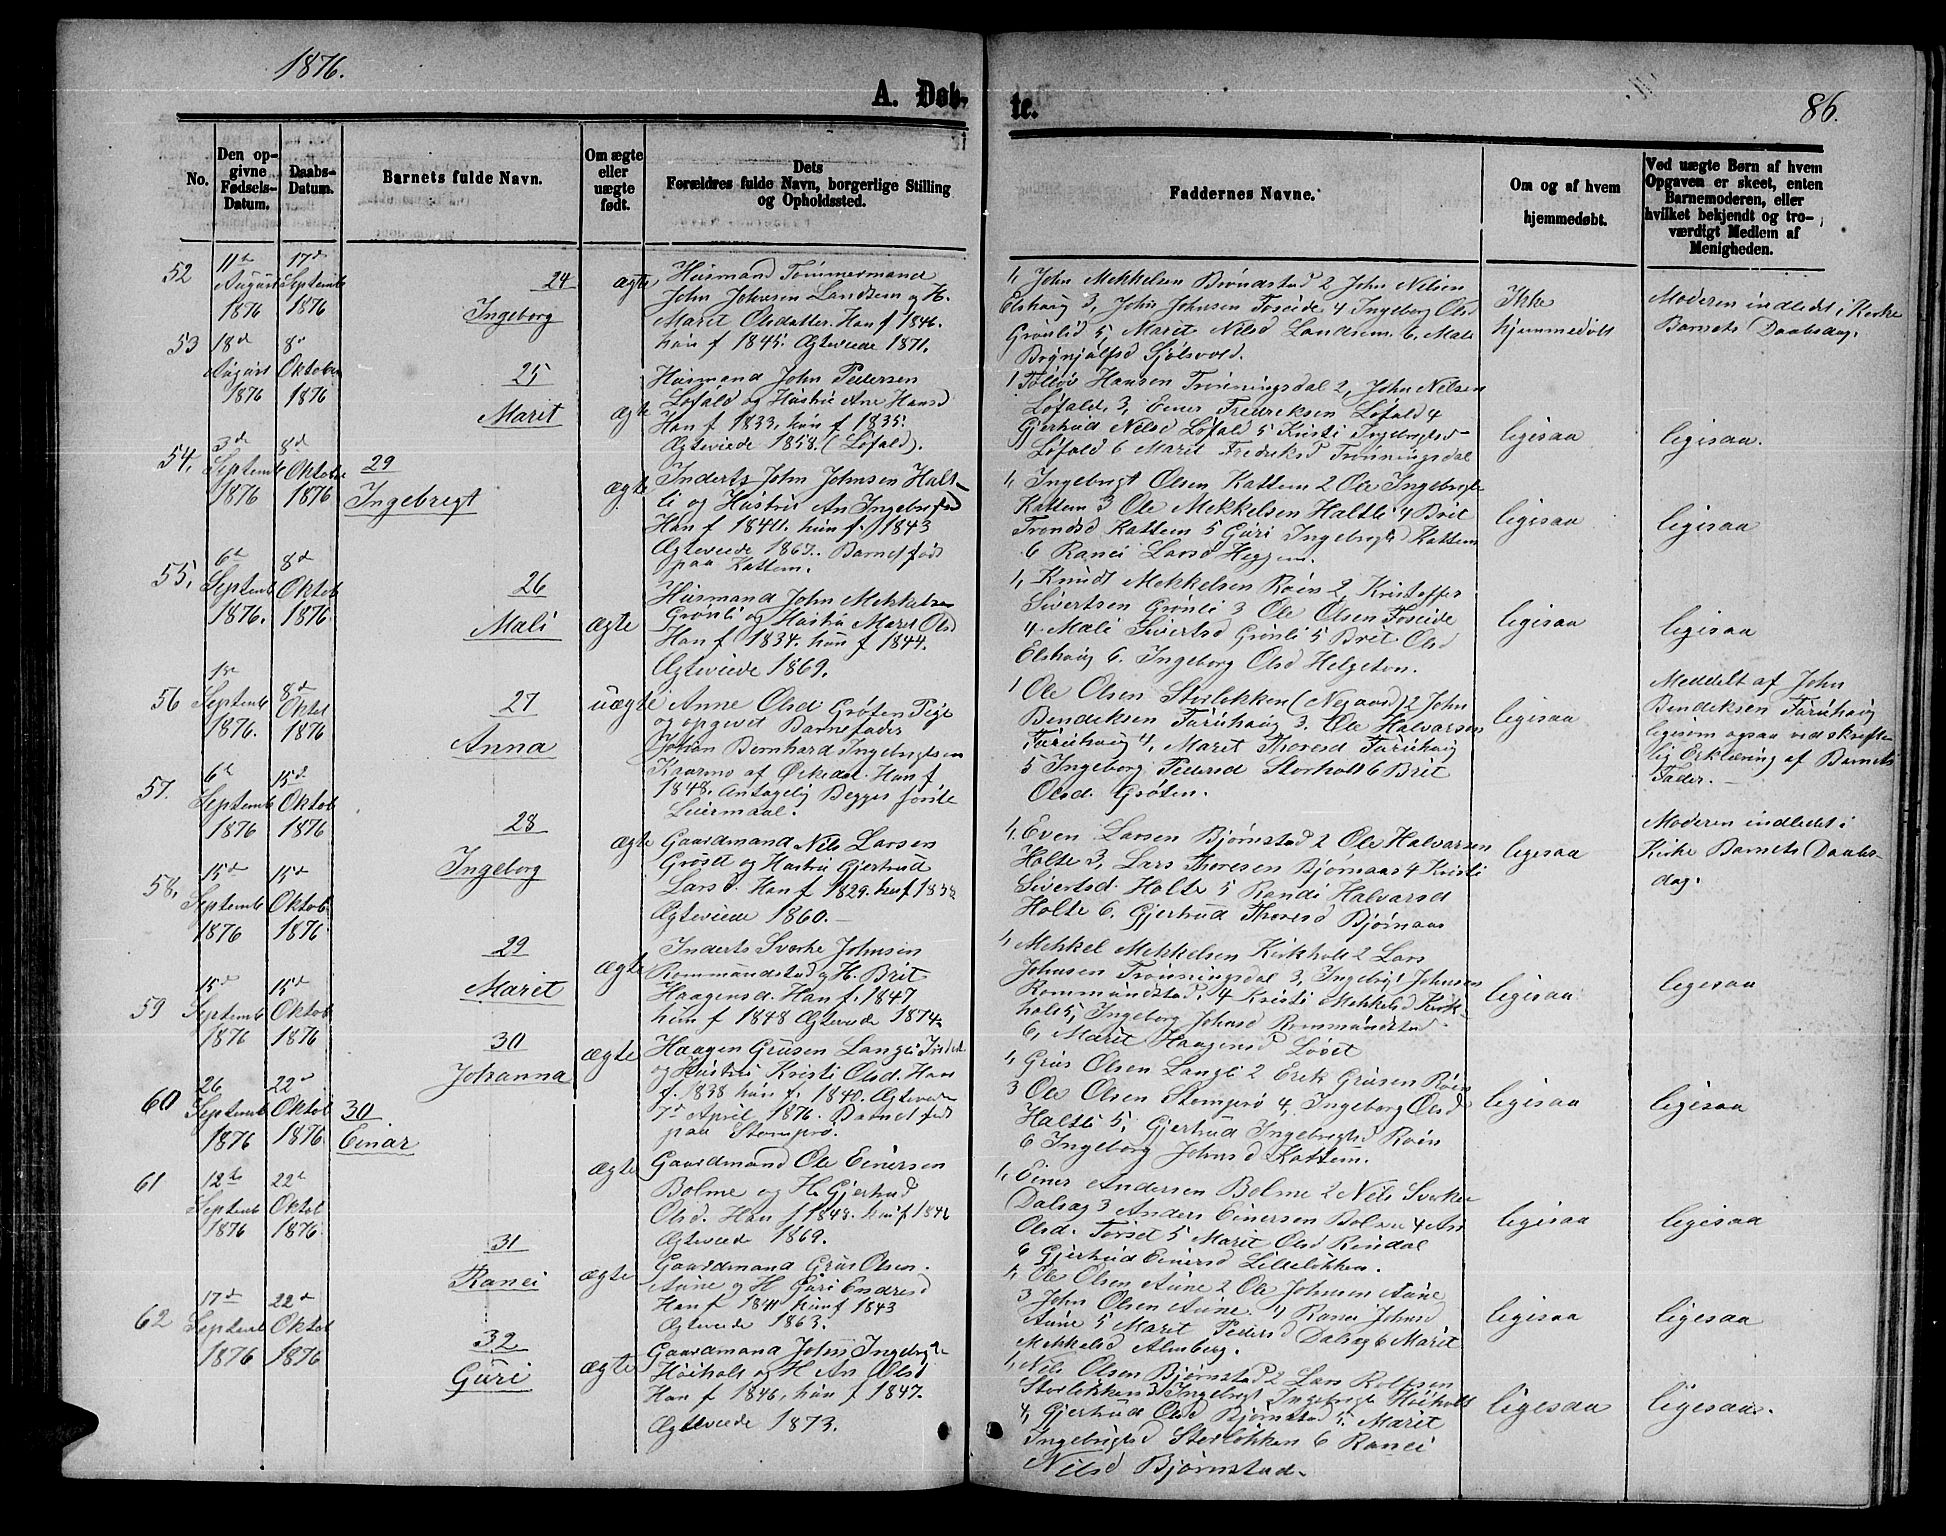 1876.
A. Døb-
te.
86.
No.
Den op-
givne
Fødsels-
Datum.
Daabs-
Datum.
Barnets fulde Navn.
Om ægte
eller
uægte
født.
Dets
Forældres fulde Navn, borgerlige Stilling
og Opholdssted.
Faddernes Navne.
Om og af hvem
hjemmedøbt.
Ved uægte Børn af hvem
Opgaven er skeet, enten
Barnemoderen, eller
hvilket bekjendt og tro-
værdigt Medlem af
Menigheden.
52
11te
August
1876
17de
Septemb
1876
24
Ingeborg
ægte
Husmand Tømmermand
John Johnsen Landsem og H.
Maret Olsdatter. Han f 1846.
hun f 1845. Ægteviede 1871.
1, John Mekkelsen Brøndstad 2 John Nilsen
Elshaug 3, John Johnsen Foseide 4 Ingeborg Olsd
Grønlid 5, Maret Nilsd Landsem. 6. Mali
Brynjulfsd Sjølsvold.
Ikke
hjemmedøbt
Moderen indledt i Kirke
Barnets Daabsdag.
53
18de
August
1876
8de
Oktober
1876
25
Marit
ægte
Husmand John Pedersen
Løfald og Hustru Ane Hansd
Han f 1833, hun f 1835.
Ægteviede 1858. (Løfald).
1 Hansen Trønningsdal 2, John Nilsen
Løfald, 3, Einer Fredriksen Løfald 4
Gjertrud Nilsd Løfald 5 Kristi Ingebrigtsd
Løfald 6 Marit Fredriksd Trønningsdal
ligesaa
ligesaa.
54,
3de
Septemb
1876
8de
Oktober
1876
29
Ingebrigt
ægte
Inderts John Johnsen Halt-
li og Hustru An Ingebrigtsd
Han f 1840. hun f. 1843
Ægteviede 1867. Barnet født
paa Kattem.
1, Ingebrigt Olsen Kattem 2 Ole Ingebrigts
Kattem 3 Ole Mekkelsen Haltli 4 Brit
Trondsd Kattem 5 Guri Ingebrigts Kattem
6 Ranei Larsd Heggem.
ligesaa
ligesaa
55,
6te
Septemb
1876.
8de
Oktob
1876
26
Mali
ægte
Husmand John Mekkelsen
Grønli og Hustru Maret Olsd
Han f 1834. hun f 1844.
Ægteviede 1869.
1, Knudt Mekkelsen Røen 2, Kristoffer
Sivertsen Grønli 3 Ole Olsen Foseide
4. Mali Sivertsd Grønli 5 Brit Olsd
Elshaug 6. Ingeborg Olsd Helgeton.
ligesaa
ligesaa
56
1ste
Septemb
1876.
8de
Oktob
1876
27
Anna
uægte
Anne Olsd Grøten Pige
og opgevet Barnefader
Johan Bernhard Ingebrigtsen
Kaarmo af Ørkedal. Han f
1848. Antagelig Begges første
Leiermaal.
1 Ole Olsen Storløkken (Negaard) 2 John
Bendiksen Furuhaug 3. Ole Halvarsen
Furuhaug 4, Maret Thoresd Furuhaug
5 Ingeborg Pedersd Storholt 6 Brit
Olsd. Grøten.
ligesaa
Meddelt af John
Bendiksen Furuhaug
ligesom ogsaa ved skrift-
lig Erklæring af Barnets
Fader.
57.
6te
Septemb
1876
15de
Oktob
1876
28
Ingeborg
ægte
Gaardmand Nils Larsen
Grøset og Hustru Gjertrud
Larsd. Han f 1829. hun f 1838
Ægteviede 1860.
1, Even Larsen Bjørnstad 2 Ole Halvarsen
Holte 3, Lars Thoresen Bjørnaas 4 Kristi
Sivertsd. Holte 5 Randi Halvarsd
Holte 6. Gjertrud Thoresd Bjørnaas
ligesaa
Moderen indledet i
Kirke Barnets Daabs-
dag.
58,
15de
Septemb
1876
15de
Oktob.
1876
29
Marit
ægte
Inderts Sverke Johnsen
Rommundstad og H. Brit
Haagensd. Han f. 1847
hun f 1848 Ægteviede 1874.
1, Mekkel Mekkelsen Kirkholt 2 Lars
Johnsen Trønningsdal 3, Ingebrigt Johnsen
Rommundstad. 4 Kristi Mekkelsd Kirk-
holt 5, Ingeborg Johnsd Rommundstad
6, Marit Haagensd Løset
ligesaa
ligesaa
59
15de
Septemb
1876
15de
Oktob
1876
30
Johanna
ægte
Haagen Grusen Langli
og Hustru Kristi Olsd. Han
f. 1838 hun f. 1840. Ægteviede
7de April 1876. Barnet født
paa Stompro.
1, Grus Olsen Langli 2 Erik Grusen Røen
3 Ole Olsen Stomprø 4, Ingeborg Olsd
Haltli 5, Gjertrud Ingebrigtsd Røen
6 Ingeborg Johnsd Kattem.
ligesaa
ligesaa
60
26
Septemb
1876
22de
Oktob
1876
30
Einar
ægte
Gaardmand Ole Einersen
Bolme og H. Gjertrud
Olsd. Han f 1848. hun f 1846
Ægteviede 1869.
1, Einer Andersen Bolme 2 Nils Sverke
Dalsag 3 Anders Einersen Bolme 4 An
Olsd. Torset 5 Maret Olsd Rindal
6 Gjertrud Einersd Lilleløkken.
ligesaa
ligesaa
61
12te
Septemb
1876
22de
Oktob
1876
31
Ranei
ægte
Gaardmand Grus Olsen
Aune og H Guri Endresd
Han f 1841 hun f 1843
Ægteviede 1863.
1, Ole Olsen Aune 2 Ole Johnsen Aune
3 John Olsen Aune 4 Ranei Johnsd
Aune 5 Marit Pedersd Dalsag 6 Marit
Mekkelsd Almberg.
ligesaa
ligesaa
62
17de
Septemb
1876
22de
Oktob
1876
32
Guri
ægte
Gaardmand John Ingebrigts
Høiholt og H An Olsd
Han f 1846, hun f 1847.
Ægteviede 1873.
1, Nils Olsen Bjørnstad 2 Lars Rolfsen
Storløkken 3 Ingebrigt Ingebrigts Høiholt
4, Gjertrud Olsd Bjørnstad 5. Marit
Ingebrigtsd Storløkken 6 Ranei
Nilsd Bjørnstad.
ligesaa
ligesaa.